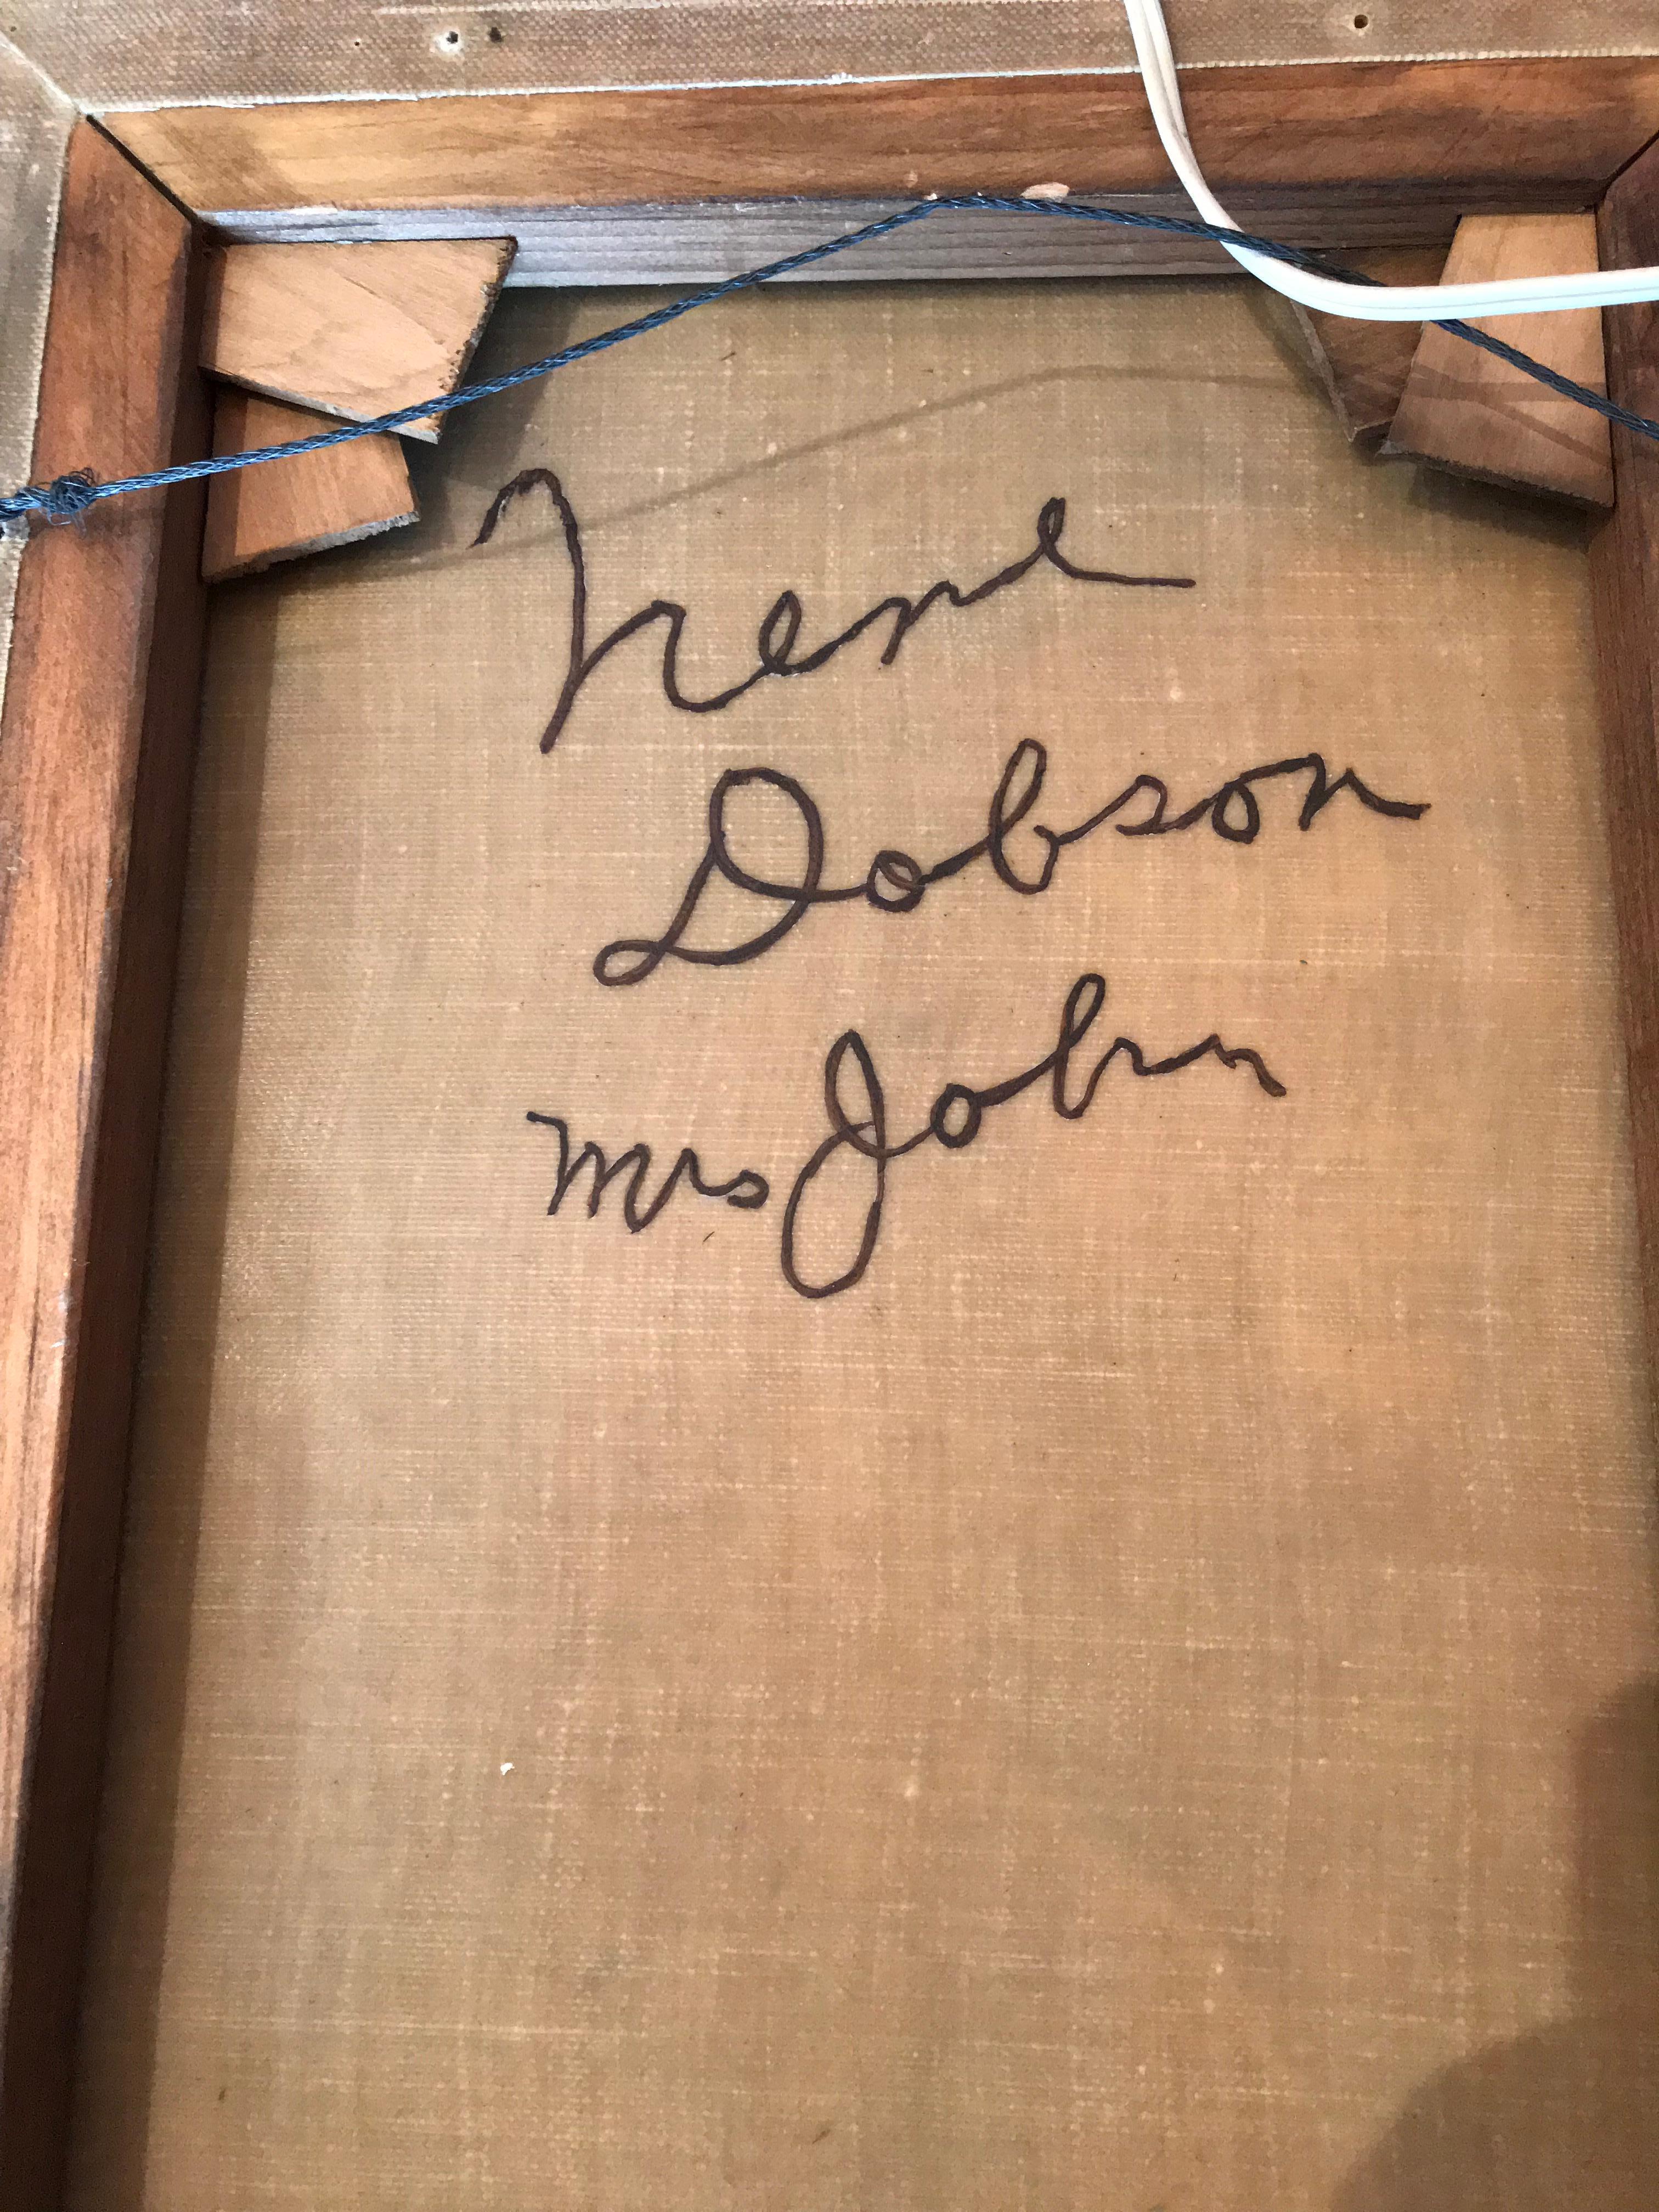 Irene
Dobson
Mrs John